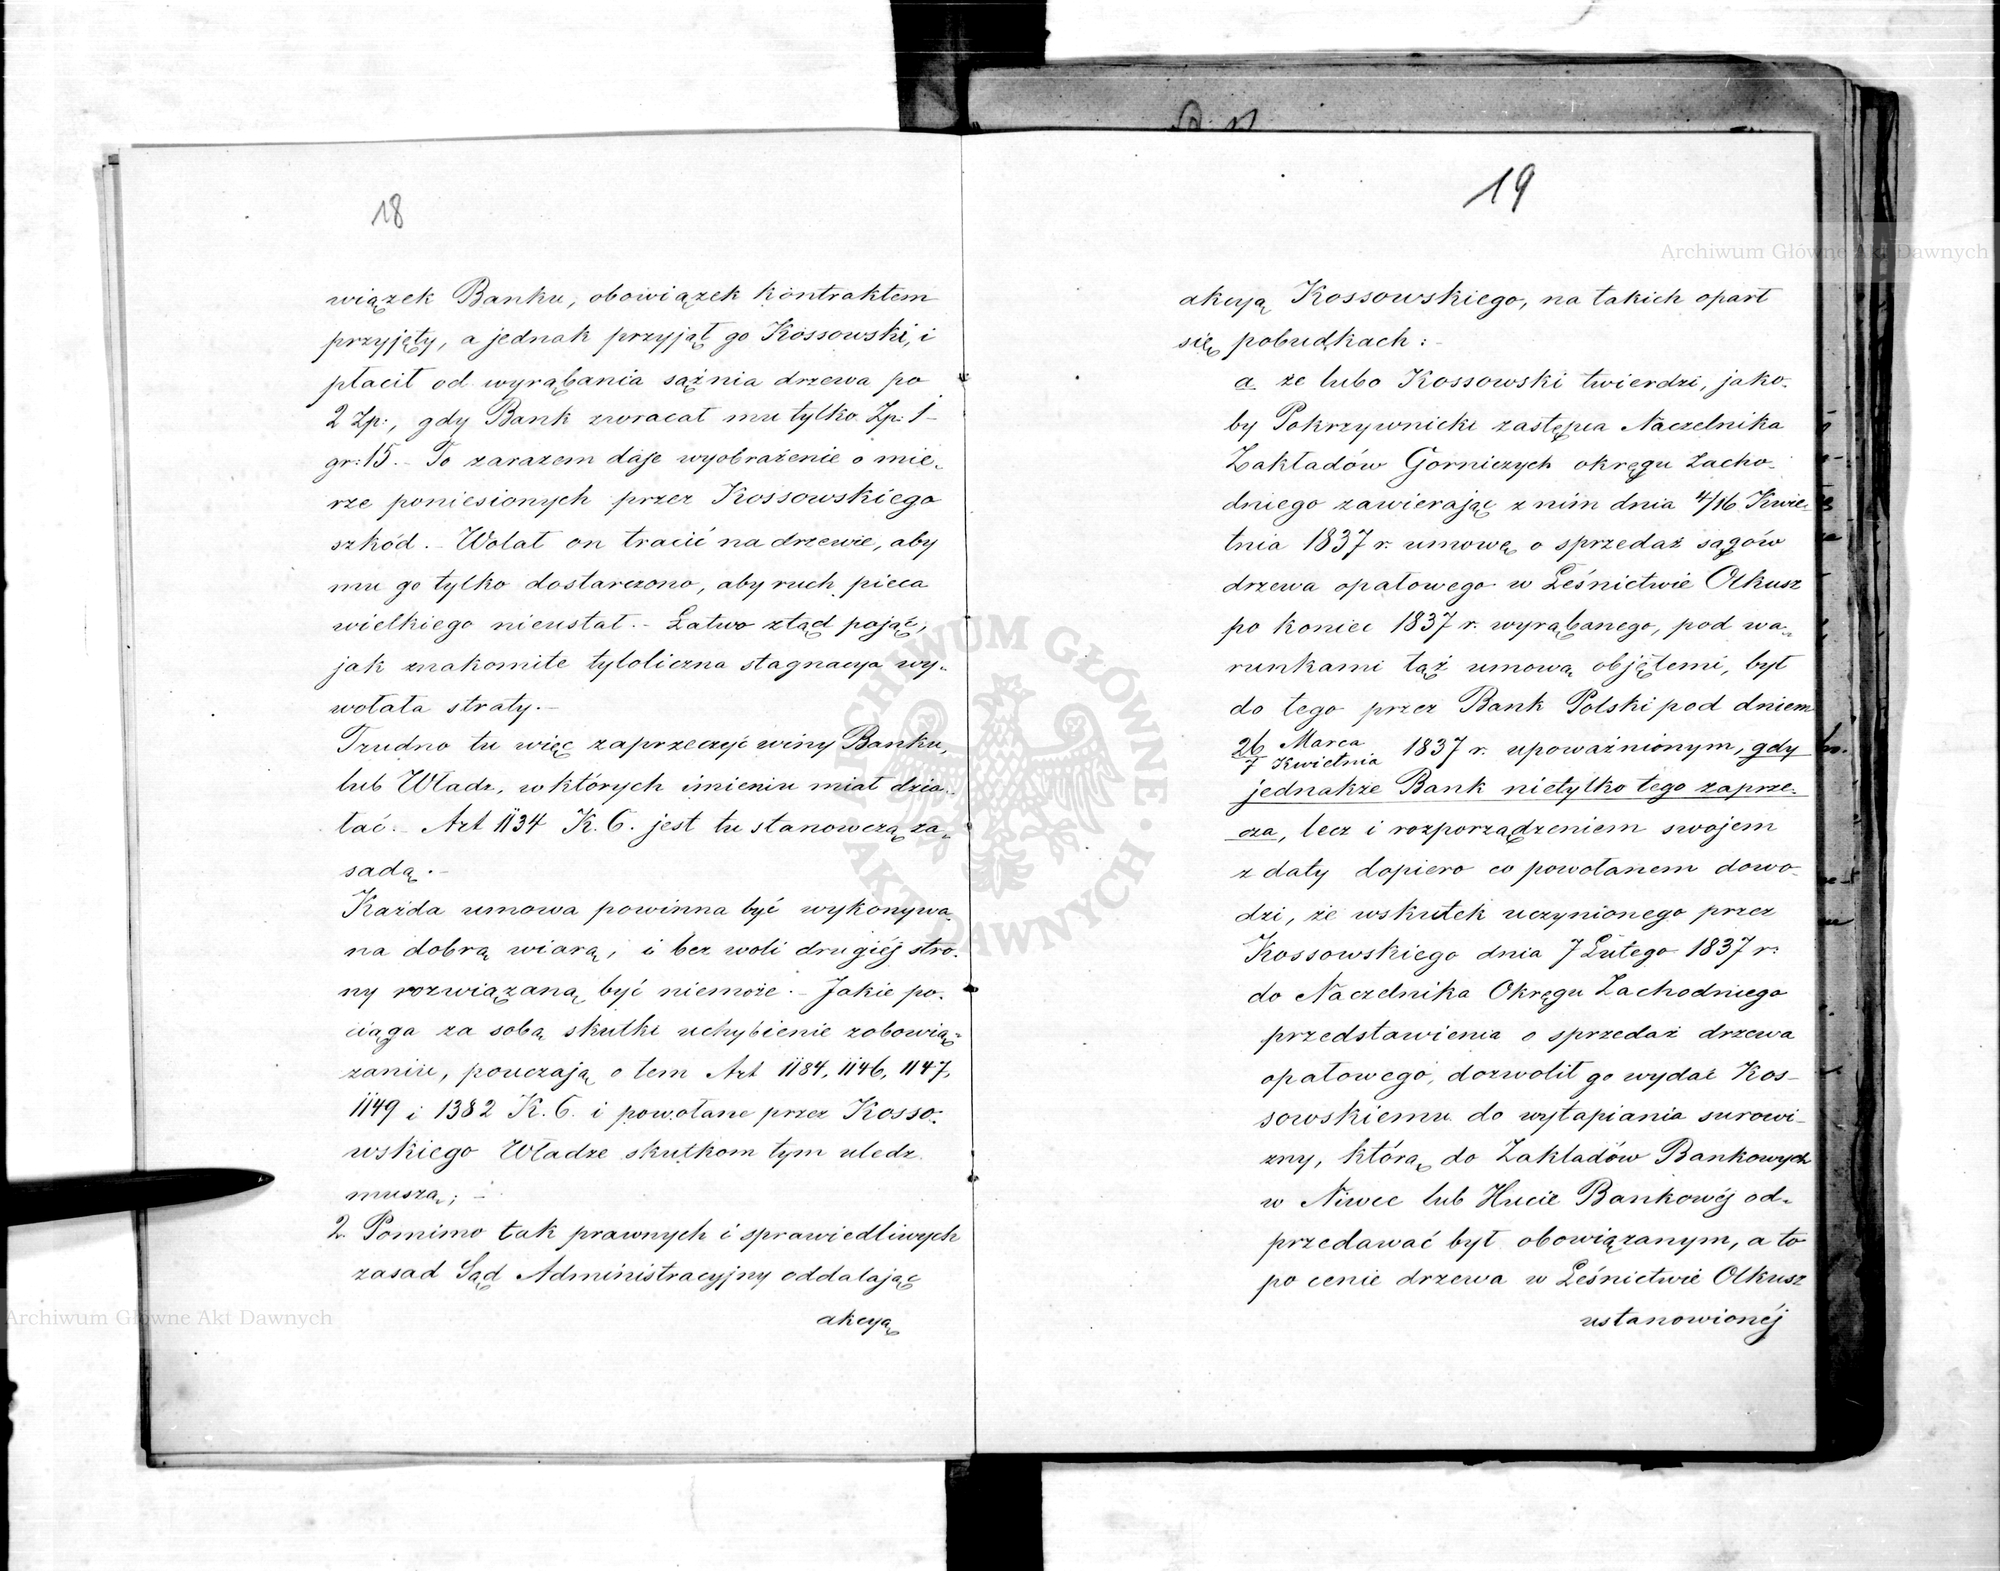 18
wiązek Banku, obowiązek kontraktem
przyjęty, a jednak przyjął go Kossowski, i
płacił od wyrąbania sążnia drzewa po
2 Zp:, gdy Bank zwracał mu tylko Zp: 1 –
gr: 15. – To zarazem daje wyobrażenie o mie-
rze poniesionych przez Kossowskiego
szkód. – Wolał on tracić na drzewie, aby
mu go tylko dostarczono, aby ruch pieca
wielkiego nieustał. – Łatwo ztąd pojąć,
jak znakomite tyloliczna stagnacya wy-
wołała straty. –
Trudno tu więc zaprzeczyć winy Banku,
lub Władz, w których imieniu miał dzia-
łać. – Art 1134 K. C. jest tu stanowczą za-
sadą. –
Każda umowa powinna być wykonywa-
na dobrą wiarą, i bez woli drugiéj stro-
ny rozwiązaną być niemoże. – Jakie po-
ciąga za sobą skutki uchybienie zobowią-
zaniu, pouczają o tem Art 1184, 1146, 1147,
1149 i 1382 K. C. i powołane przez Kosso-
wskiego Władze skutkom tym uledz
muszą; –
2. Pomimo tak prawnych i sprawiedliwych
zasad Sąd Administracyjny oddalając
akcyą
19
akcyą Kossowskiego, na takich oparł
się pobudkach: –
a że lubo Kossowski twierdzi, jako-
by Pokrzywnicki zastępca Naczelnika
Zakładów Gorniczych okręgu Zacho-
dniego zawierając z nim dnia 4/16 Kwie-
tnia 1837 r. umowę o sprzedaż sągów
drzewa opałowego w Leśnictwie Olkusz
po koniec 1837 r. wyrąbanego, pod wa-
runkami tąż umową objętemi, był
do tego przez Bank Polski pod dniem
26 Marca / 7 Kwietnia 1837 r. upoważnionym, gdy
jednakże Bank nietylko tego zaprze-
cza, lecz i rozporządzeniem swojem
z daty dopiero co powołanem dowo-
dzi, że wskutek uczynionego przez
Kossowskiego dnia 7 Lutego 1837 r:
do Naczelnika Okręgu Zachodniego
przedstawienia o sprzedaż drzewa
opałowego, dozwolił go wydać Kos-
sowskiemu do wytapiania surowi-
zny, którą do Zakładów Bankowych
w Niwce lub Hucie Bankowéj od-
przedawać był obowiązanym, a to
po cenie drzewa w Leśnictwie Olkusz
ustanowionéj
Archiwum Główne Akt Dawnych
Archiwum Główne Akt Dawnych
ARCHIWUM GŁÓWNE AKT DAWNYCH